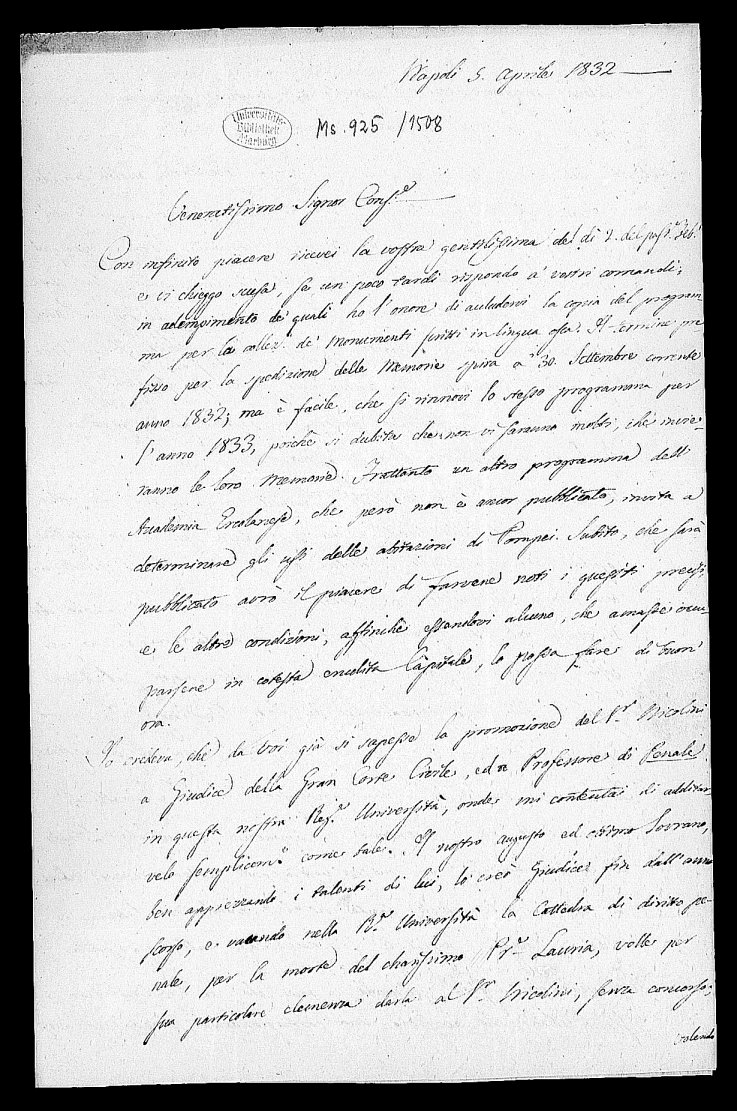 Napoli 5. Aprile 1832
Universitäts
Bibliothek
Marburg
Ms. 925 / 1508
Veneratissimo Signor Cons.e
Con infinito piacere ricevei la vostra gentilissima de' dì 2. del pass.° Feb.°
e vi chieggo scusa, se un poco tardi rispondo a' vostri comandi;
in adempimento de' quali ho l'onore di acludervi la copia del program
ma per la collez. de' monumenti scritti in lingua osca. Il termine pre
fisso per la spedizione delle memorie spira a' 30. Settembre corrente
anno 1832; ma è facile, che si rinnovi lo stesso programma per
l'anno 1833, poichè si dubita che non vi saranno molti, che invie-
ranno le loro memorie. Frattanto un altro programma dell'
Academia Ercolanese, che però non è ancor pubblicato, invita a
determinare gli usi delle abitazioni di Pompei. Subito, che sarà
pubblicato avrò il piacere di farvene noti i quesiti precisi,
e le altre condizioni, affinchè essendovi alcuno, che amasse occu-
parsene in cotesta inclita Capitale, lo possa fare di buon'
ora.
Io credeva, che da Voi già si sapesse la promozione del S.r Nicolini
a Giudice della Gran Corte Civile, ed a Professore di Penale
in questa nostra Reg.a Università, onde mi contentai di additar
velo semplicem.e come tale. Il nostro augusto ed ottimo Sovrano,
ben apprezzando i talenti di lui, lo creò Giudice fin dall'anno
scorso, e vacando nella R.a Università la Cattedra di diritto pe-
nale, per la morte del chiarissimo Pr. Lauria, volle per
sua particolare clemenza darla al S.r Nicolini, senza concorso;
volendo